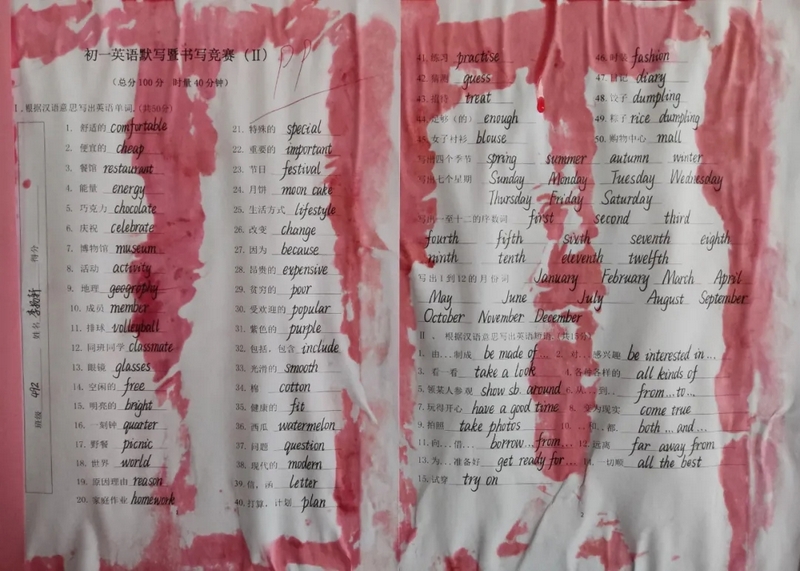 初一英语默写暨书写竞赛（II）
（总分100分 时量40分钟）
I.根据汉语意思写出英语单词。(共50分)
1. 舒适的 comfortable
2. 便宜的 cheap
3. 餐馆 restaurant
4. 能量 energy
5. 巧克力 chocolate
6. 庆祝 celebrate
7. 博物馆 museum
8. 活动 activity
9. 地理 geography
10. 成员 member
11. 排球 volleyball
12. 同班同学 classmate
13. 眼镜 glasses
14. 空闲的 free
15. 明亮的 bright
16. 一刻钟 quarter
17. 野餐 picnic
18. 世界 world
19. 原因理由 reason
20. 家庭作业 homework
21. 特殊的 special
22. 重要的 important
23. 节日 festival
24. 月饼 moon cake
25. 生活方式 lifestyle
26. 改变 change
27. 因为 because
28. 昂贵的 expensive
29. 贫穷的 poor
30. 受欢迎的 popular
31. 紫色的 purple
32. 包括，包含 include
33. 光滑的 smooth
34. 棉 cotton
35. 健康的 fit
36. 西瓜 watermelon
37. 问题 question
38. 现代的 modern
39. 信，函 letter
40. 打算，计划 plan
1
得分
姓名
班级 492
41. 练习 practise
42. 猜测 guess
43. treat
44. 足够（的） enough
45. 女子衬衫 blouse
46. 时装 fashion
47. 日记 diary
48. 饺子 dumpling
49. 粽子 rice dumpling
50. 购物中心 mall
写出四个季节 spring summer autumn winter
写出七个星期 Sunday Monday Tuesday Wednesday
Thursday Friday Saturday
写出一至十二的序数词 first second third
fourth fifth sixth seventh eighth
ninth tenth eleventh twelfth
写出1到12的月份词 January February March April
May June July August September
October November December
II. 根据汉语意思写出英语短语。(共15分)
1. 由…制成 be made of… 2. 对…感兴趣 be interested in…
3. 看一看 take a look 4. 各种各样的 all kinds of
5. 领某人参观 show sb. around 6. 从…到… from…to…
7. 玩得开心 have a good time 8. 变为现实 come true
9. 拍照 take photos 10. …和…都… both …and…
11. 向…借… borrow…from… 12. 远离 far away from
13. 为…准备好 get ready for… 14. 一切顺 all the best
15. 试穿 try on
2